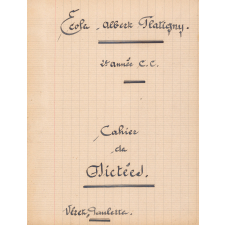 École Albert Flatigny.
2e année C.C.
Cahier
de
Dictées.
Véret, Paulette.